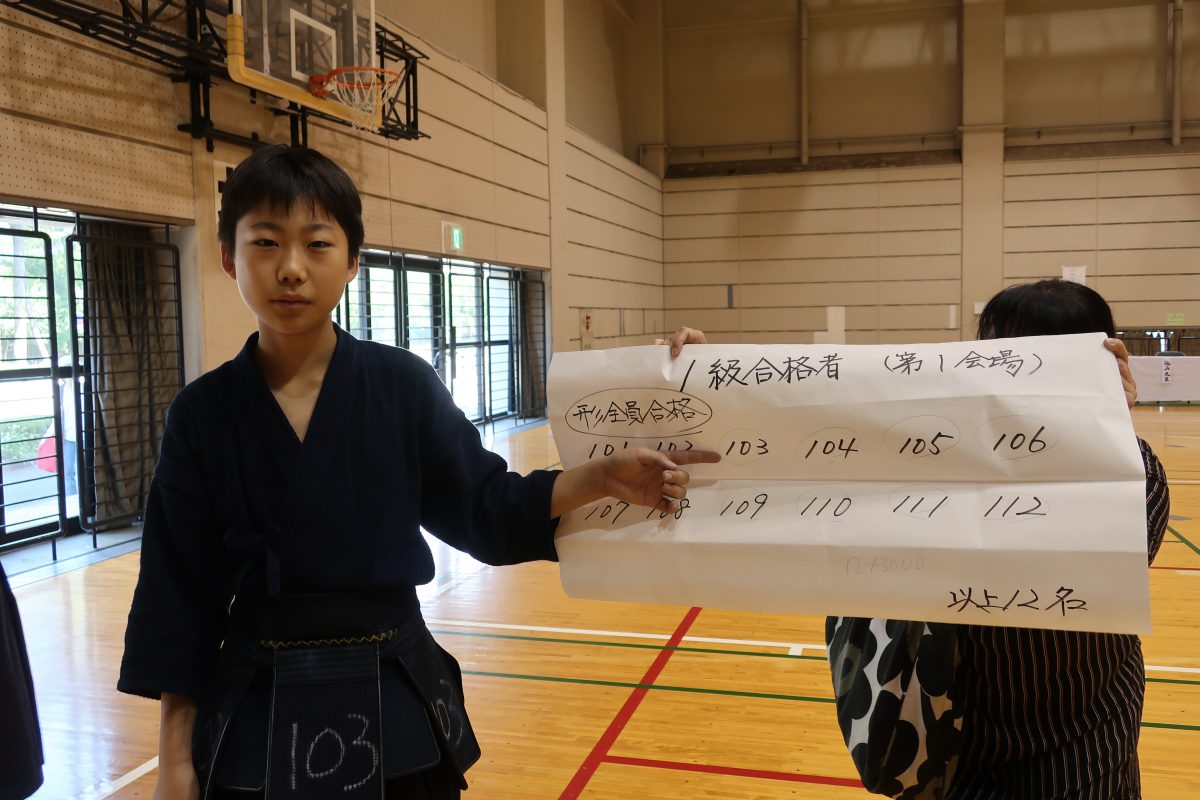 1級合格者 (第1会場)
形全員合格
101 102 103 104 105 106
107 108 109 110 111 112
12+3000
以上12名
103